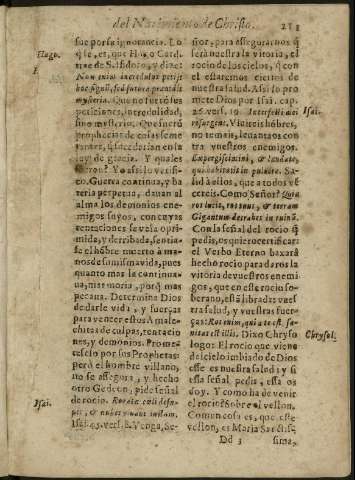 del Nacimiento de Christo.
213
Hugo.
fue por su ignorancia. Lo
q̃ se, es, que Hugo Card.
trae de S. Isidoro, y dize:
Non enim incredulus petijt
hoc signũ, sed futura prænũtiãs
mysteria. Que no fuerõ sus
peticiones, incredulidad,
sino mysterio. Que fuerõ
prophecias de cosas seme
jantes, q̃ sucederian en la
ley de gracia. Y quales
fueron? Yo assi lo verifi-
co. Guerra continua, y ba
teria perpetua, dauan al
alma los demonios ene-
migos suyos, con cuyas
tentaciones se veia opri-
mida, y derribada, sentia-
se el hõbre muerto à ma-
nos de su misma vida, pues
quanto mas la continua-
ua, mas moria, porq̃ mas
pecaua. Determina Dios
de darle vida, y fuerças
para vencer estos Amale-
chitas de culpas, tentacio
nes, y demonios. Prome-
teselo por sus Prophetas:
pero el hombre villano,
no se assegura, y hecho
otro Gedeon, pide señal
de rocio. Rorate cæli desu-
Isai.
per, & nubes pluant iustum.
Isai. 45. vers. 8. Venga, Se-
ñor, para assegurarnos q̃
serà nuestra la vitoria, el
rocio de los cielos, q̃ con
el estaremos ciertos de
nuestra salud. Assi lo pro
mete Dios por Isai. cap.
26. vers. 19. Interfecti mei
Isai.
resurgent. Viuireis hõbres,
no temais, leuantaos con
tra vuestros enemigos.
Expergiscimini, & laudate,
qui habitatis in puluere. Sa-
lid à ellos, que a todos vẽ
cereis. Como Señor? Quia
ros lucis, ros tuus, & terram
Gigantum detrahes in ruinã.
Con la señal del rocio q̃
pedis, os quiero certificar:
el Verbo Eterno baxarà
hecho rocio para daros la
vitoria de vuestros enemi
gos, que en este rocio so-
berano, està librada vues
tra salud, y vuestras fuer-
ças: Ros enim, qui a te est, sa-
nitas est illis. Dixo Chryso
Chrysol.
logo: El rocio que viene
del cielo imbiado de Dios
esse es nuestra salud; y si
essa señal pedis, essa os
doy. Y como ha de venir
el rocio? Sobre el vellon.
Comun cosa es, que este
vellon, es Maria Santis-
Dd 3
sima,